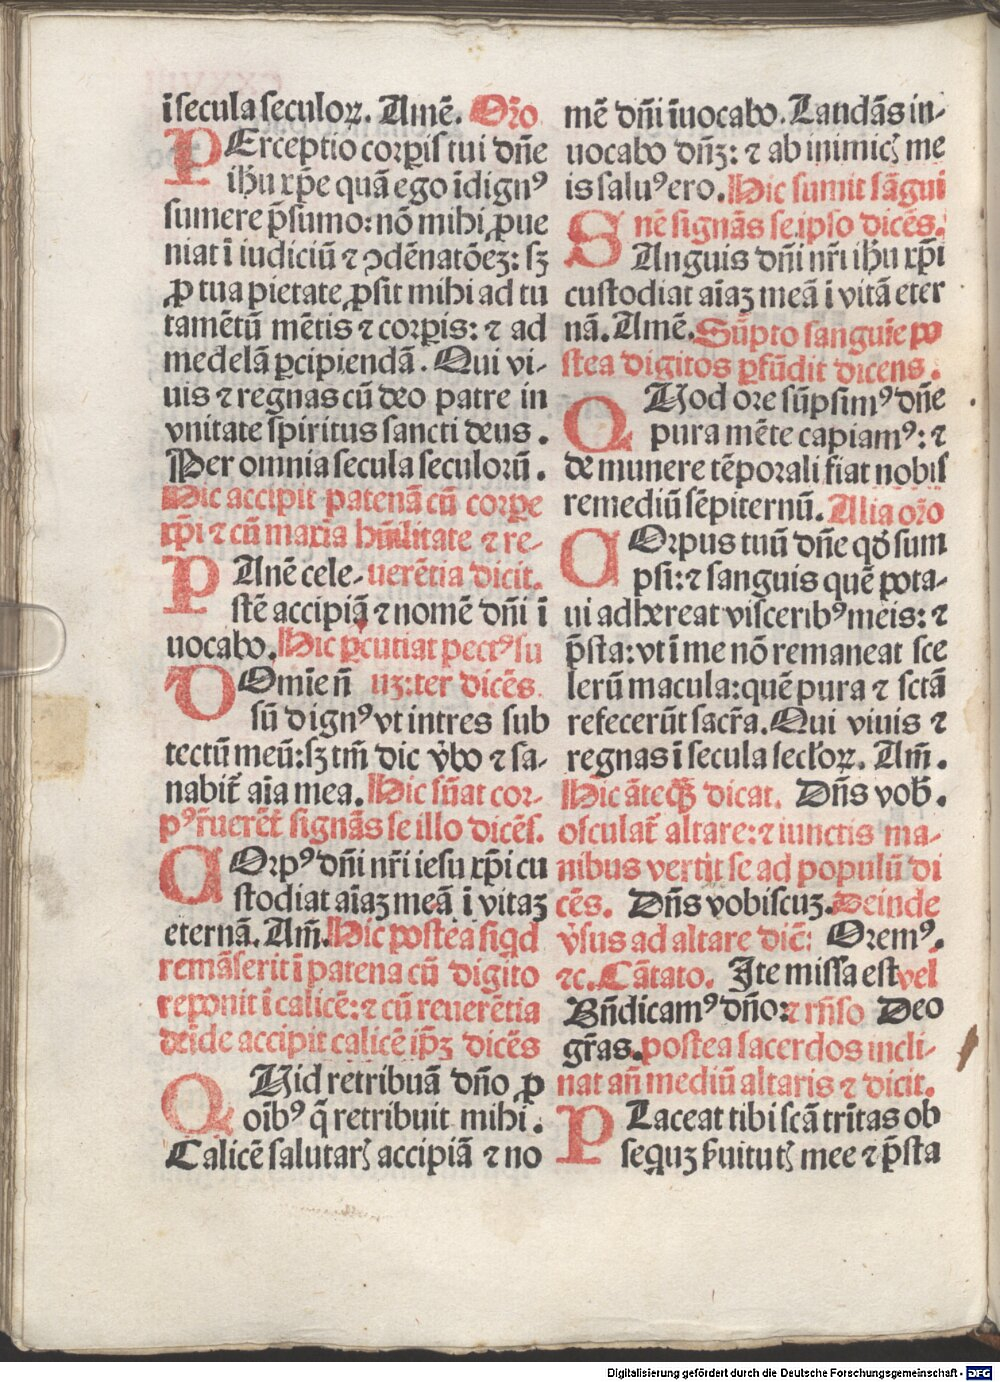 ī secula seculoꝝ. Amē. Oro̅
PErceptio corꝑis tui dn̄e
ihū xp̄e quā ego īdignꝰ
sumere p̄sumo: nō mihi ꝓue
niat ī iudiciū ⁊ ꝯdēnatōeʒ: sʒ
ꝓ tua pietate ꝓsit mihi ad tu
tamētū mētis ⁊ corꝑis: ⁊ ad
medelā ꝑcipiendā. Qui vi-
uis ⁊ regnas cū deo patre in
vnitate spiritus sancti deus.
Per omnia secula seculorū.
Hic accipit patenā cū corꝑe
xp̄i ⁊ cū maxīa hūilitate ⁊ re-
PAnē cele- uerētia dicit.
stē accipiā ⁊ nomē dn̄i ī
uocabo. Hic ꝑcutiat pectꝰ su
DOmīe n̄ uʒ: ter dicēs.
sū dignꝰ vt intres sub
tectū meū: sʒ tm̄ dic v̓bo ⁊ sa-
nabit̄ aīa mea. Hic sn̄at cor-
pꝰ r̄uerēt̓ signās se illo dicēs.
COrpꝰ dn̄i nr̄i iesu xp̄i cu
stodiat aīaʒ meā ī vitaʒ
eternā. Am̄. Hic postea siqd
remāserit ī patena cū digito
reponit ī calicē: ⁊ cū reuerētia
deīde accipit calicē ip̄ʒ dicēs
QUid retribuā dn̄o ꝓ
oīb⁹ q̄ retribuit mihi.
Calicē salutarꝭ accipiā ⁊ no
mē dn̄i īuocabo. Laudās in-
uocabo dn̄ʒ: ⁊ ab inimicꝭ me
is saluꝰ ero. Hic sumit sāgui
nē signās se ipso dicēs.
SAnguis dn̄i nr̄i ihū xp̄i
custodiat aīaʒ meā ī vitā eter
nā. Amē. Sūpto sanguīe po
stea digitos ꝑfūdit dicens.
QUod ore sūpsimꝰ dn̄e
pura mēte capiamꝰ: ⁊
de munere tēporali fiat nobis
remediū sēpiternū. Alia oro̅
COrpus tuū dn̄e qd̓ sum
psi: ⁊ sanguis quē pota-
ui adhereat visceribꝰ meis: ⁊
p̄sta: vt ī me nō remaneat sce
lerū macula: quē pura ⁊ sctā
refecerūt sacr̄a. Qui viuis ⁊
regnas ī secula secl̓oꝝ. Am̄.
Hic āteqꝫ dicat. Dn̄s vob̓.
osculat̄ altare: ⁊ iunctis ma-
nibus vertit se ad populū di
cēs. Dn̄s vobiscuʒ. Deinde
v̓sus ad altare dic̄: Oremꝰ.
⁊c. Cātato. Ite missa est vel
Bn̄dicamꝰ dn̄o: ⁊ rn̄so Deo
gr̄as. postea sacerdos incli-
nat an̄ mediū altaris ⁊ dicit.
PLaceat tibi scā trīitas ob
sequʒ s̓uitutꝭ mee ⁊ p̄sta
Digitalisierung gefördert durch die Deutsche Forschungsgemeinschaft - DFG